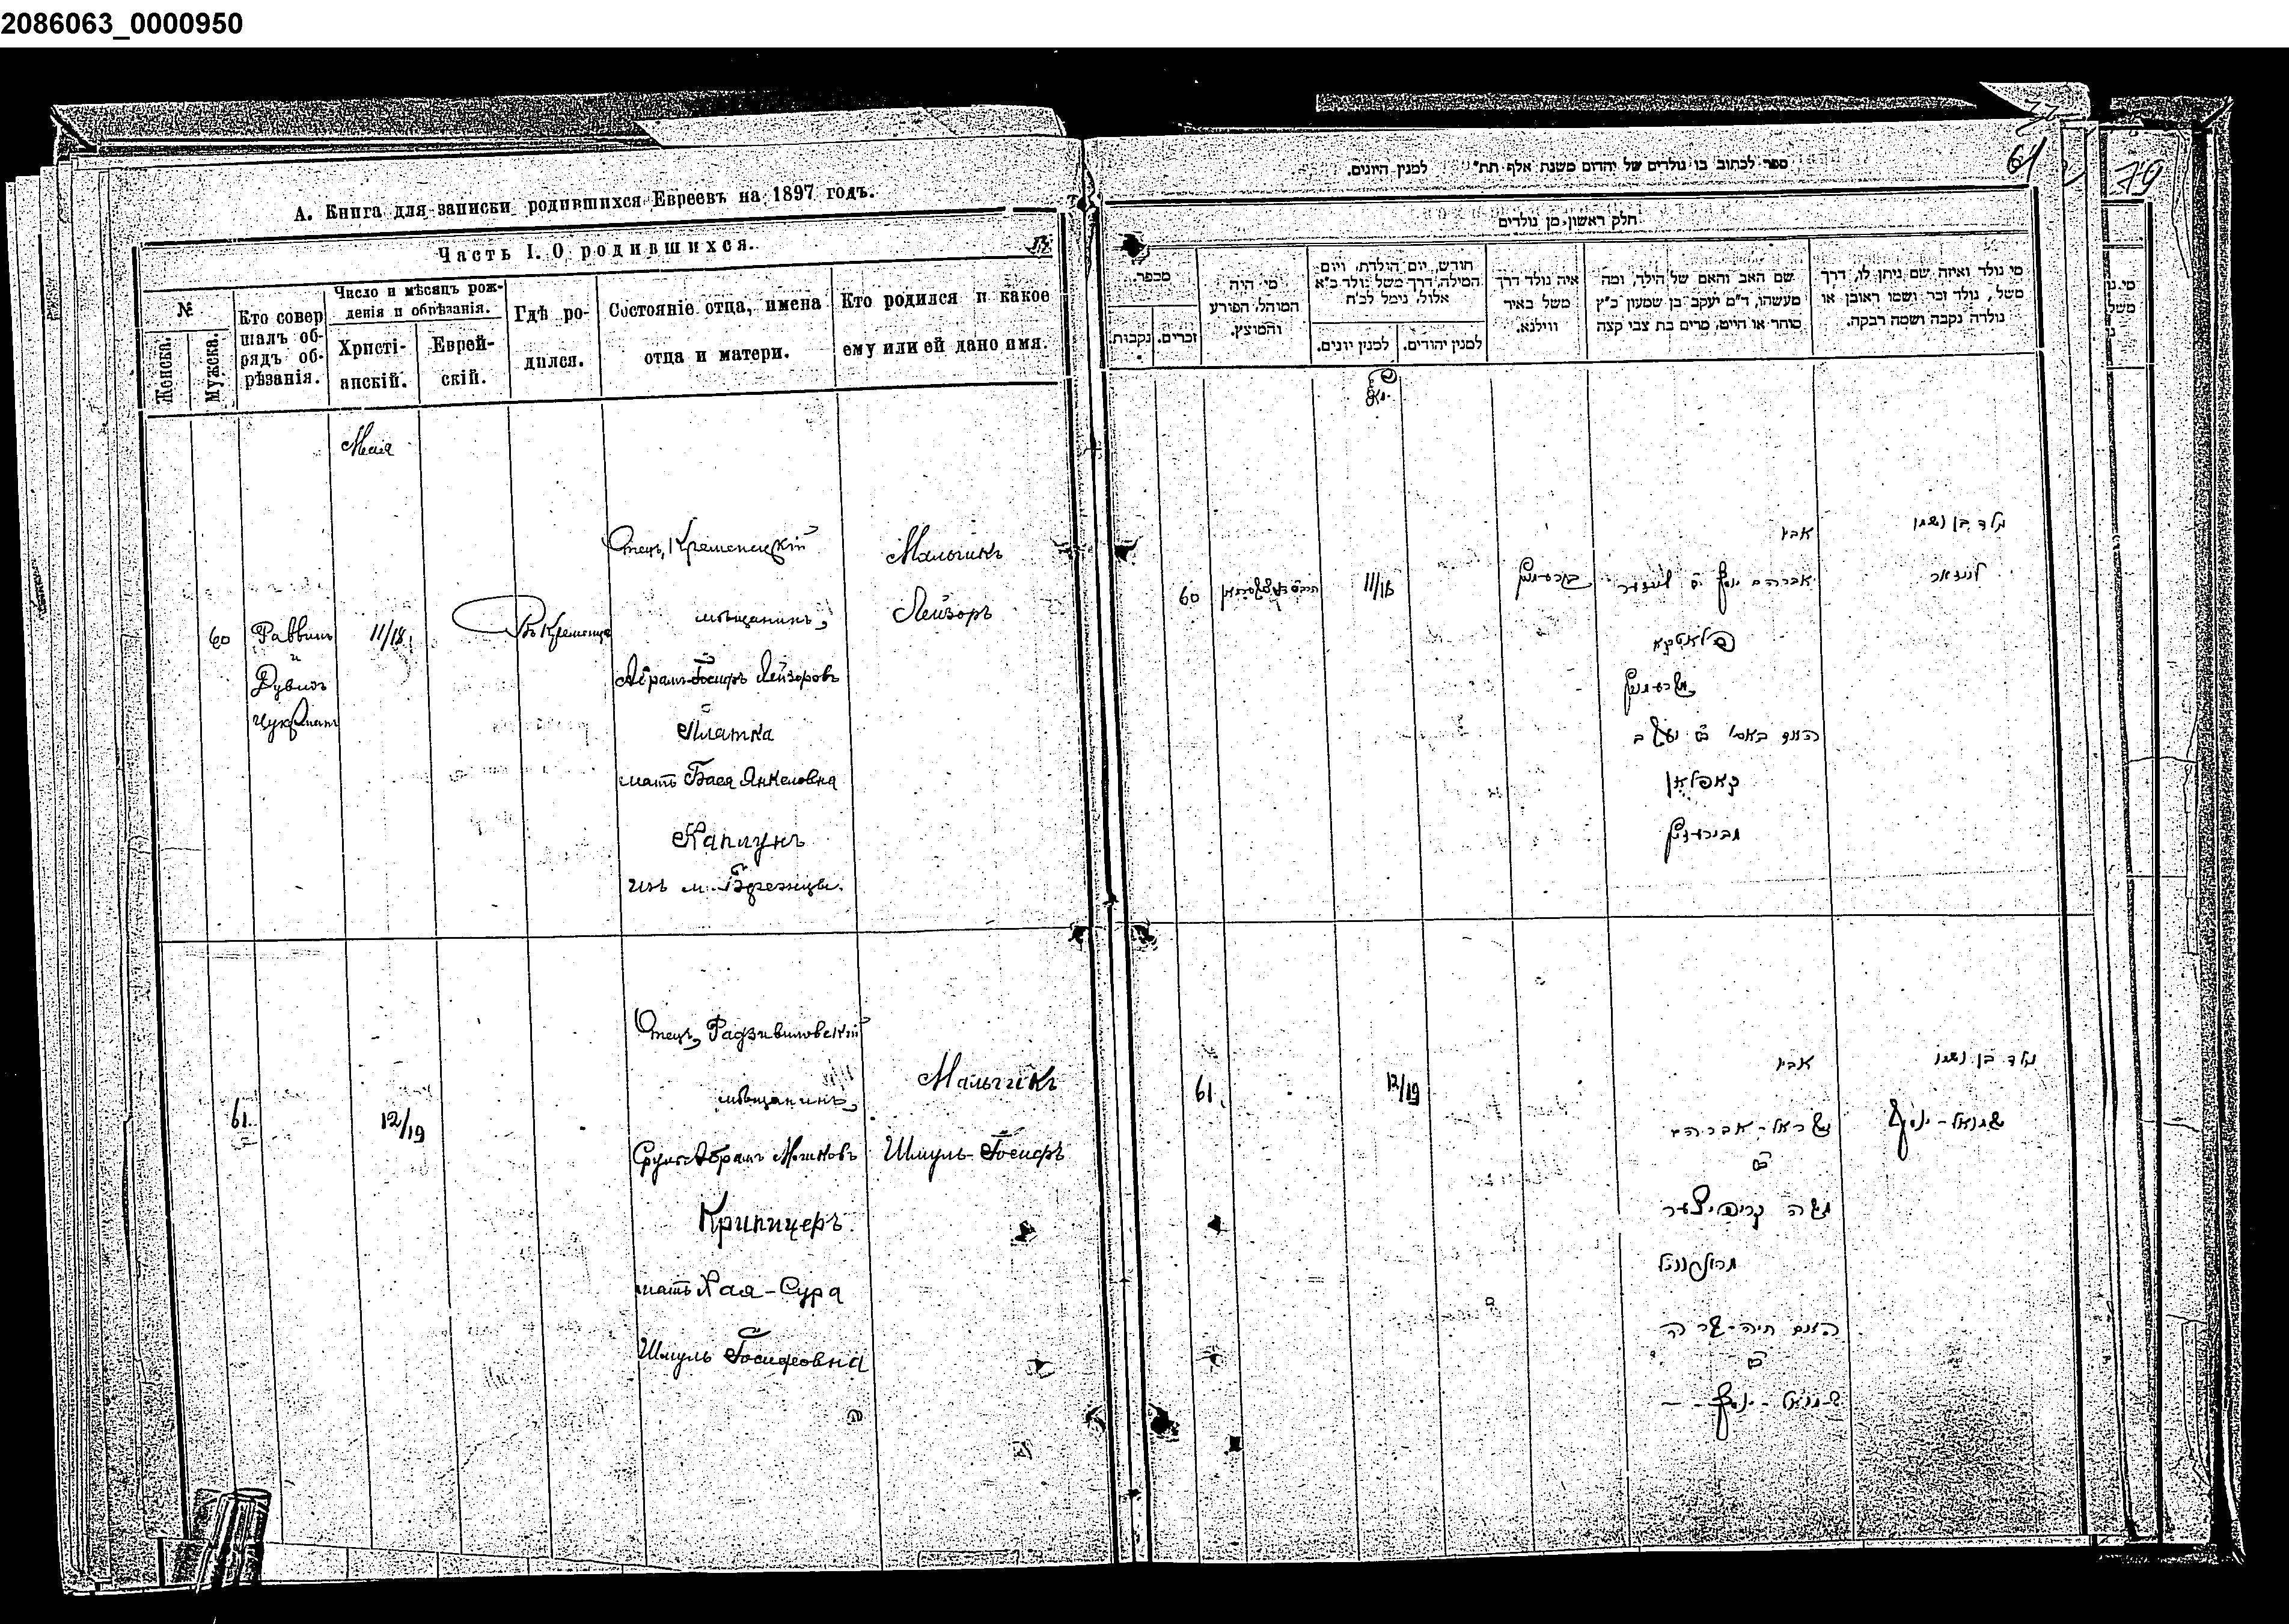 2086063_0000950
А. Книга для записки родившихся Евреевъ на 1897 годъ.
Часть I. О родившихся.
№
Женска.
Мужска.
Кто совер
шалъ об-
рядъ об-
рѣзанія.
Число и мѣсяцъ рож-
денія и обрѣзанія.
Христі-
анскій.
Еврей-
скій.
Гдѣ ро-
дился.
Состояніе отца, имена
отца и матери.
Кто родился и какое
ему или ей дано имя.
Мая
60
Раввинъ
и
Рувинъ
Цукрманъ
11/18
Въ Кременцѣ
Отецъ, Кременецкій
мѣщанинъ,
Абрамъ-Іосифъ Лейзоровъ
Платка
мать Бася Янкелевна
Каплунъ
изъ м. Бережцы.
Мальчикъ
Лейзоръ
61.
12/19
Отецъ, Радзивиловскій
мѣщанинъ,
Сруль-Абрамъ Мошковъ
Крипицеръ
мать Хая-Сура
Шмуль Іосифовна
Мальчикъ
Шмуль-Іосифъ
ספר לכתוב בו נולדים של יהדום משנת אלף תת״ למנין היונים.
61
79
חלק ראשון מן נולדים
מכפר.
נקבות.
זכרים.
מי היה
המוהל הפורע
והמוצץ.
חודש, יום הולדת, ויום
המילה, דרך משל נולד כ״א
אלול, נימל לכ״ח
למנין יונים.
למנין יהודים.
איה נולד דרך
משל באיר
ווילנא.
שם האב והאם של הילד, ומה
מעשהו, ד״מ יעקב בן שמעון כ״ץ
סוחר או חייט, מרים בת צבי קצה
מי נולד ואיזה שם ניתן לו, דרך
משל, נולד זכר ושמו ראובן או
נולדה נקבה ושמה רבקה.
60
11/18
אביו
אברהם יוסף ב׳ לייזער
פלאטקא
קאפלאן
נולד בן ושמו
לייזער
61.
12/19
אביו
ישראל-אברהם
ב׳
משה קריפיצער
האם חיה-שרה
ב׳
שמואל-יוסף
נולד בן ושמו
שמואל-יוסף